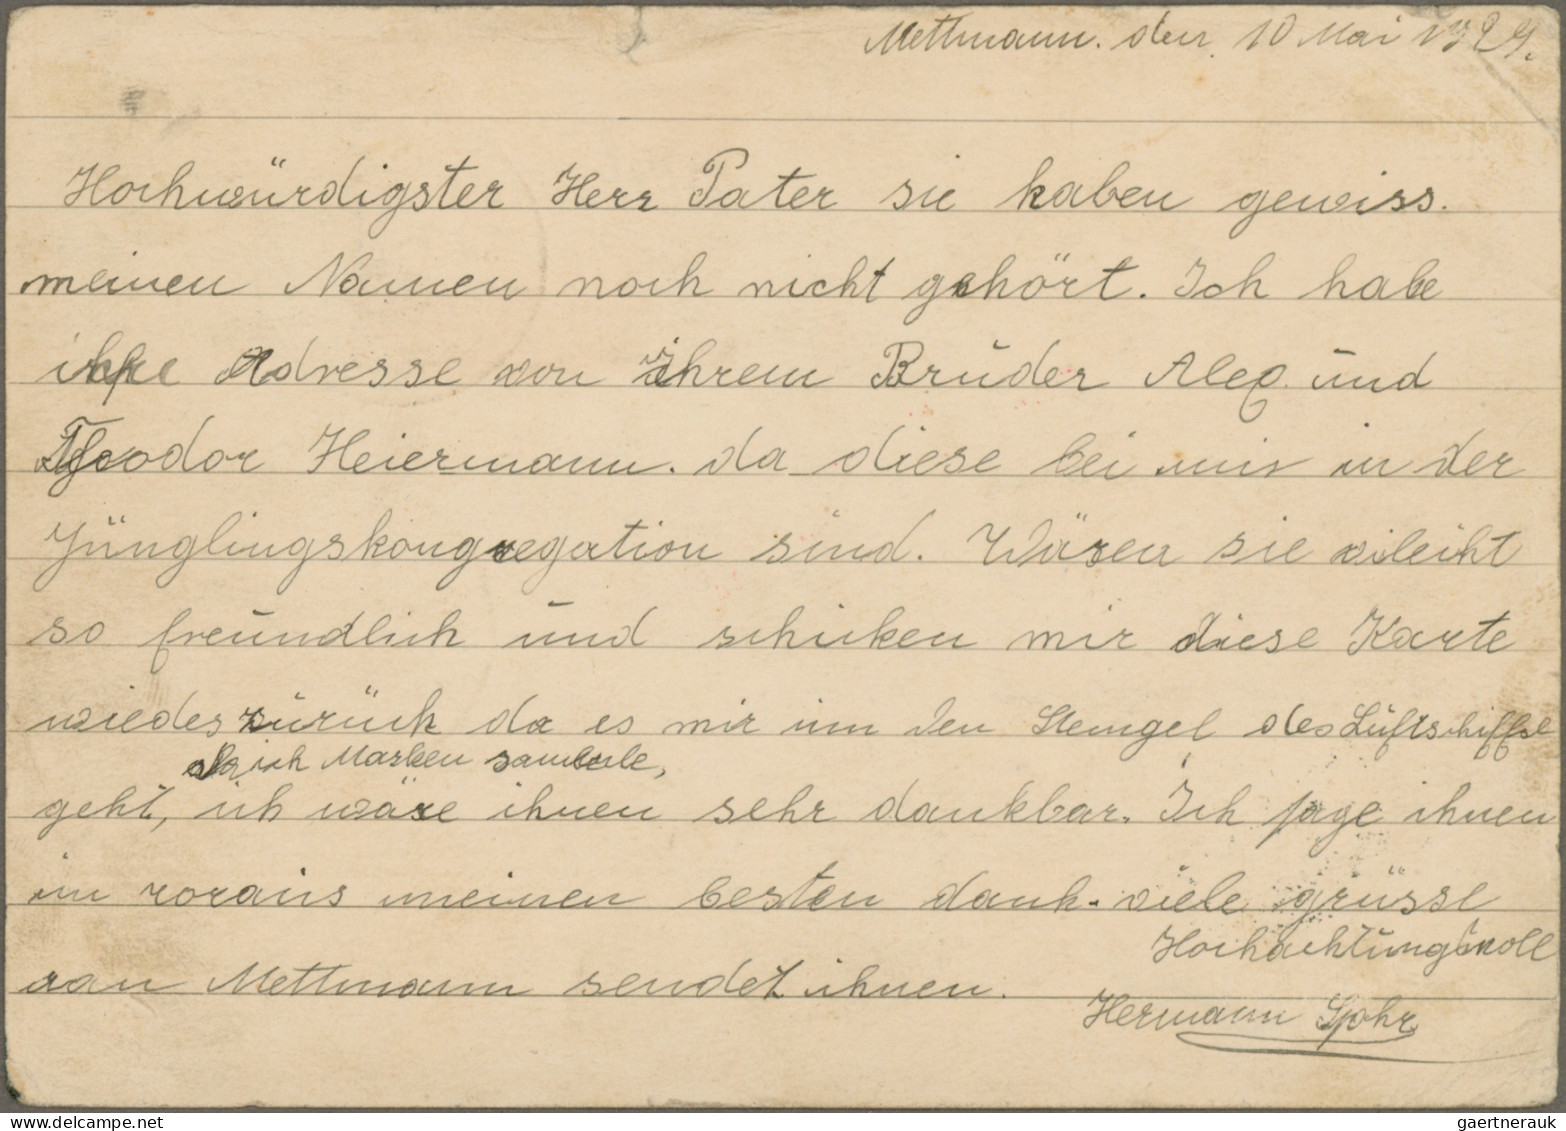 Mettmann. den 10 Mai 1929.
Hochwürdigster Herr Pater sie haben gewiss.
meinen Namen noch nicht gehört. Ich habe
ihre Adresse von Ihrem Brūder Alex. ūnd
Theodor Heiermann. da diese bei mir in der
Jūnglingskongregation sind. Wären sie vileiht
so freūndlich ūnd schicken mir diese Karte
wieder zūrück da es mir ūm den Stempel des Lūftschiffse
da ich Marken sammle,
geht, ich wäre ihnen sehr dankbar. Ich sage ihnen
im voraūs meinen besten dank. viele grüsse
Hochachtūngsvoll
van Mettmann sendet ihnen.
Hermann Spohr
gaertnerauk